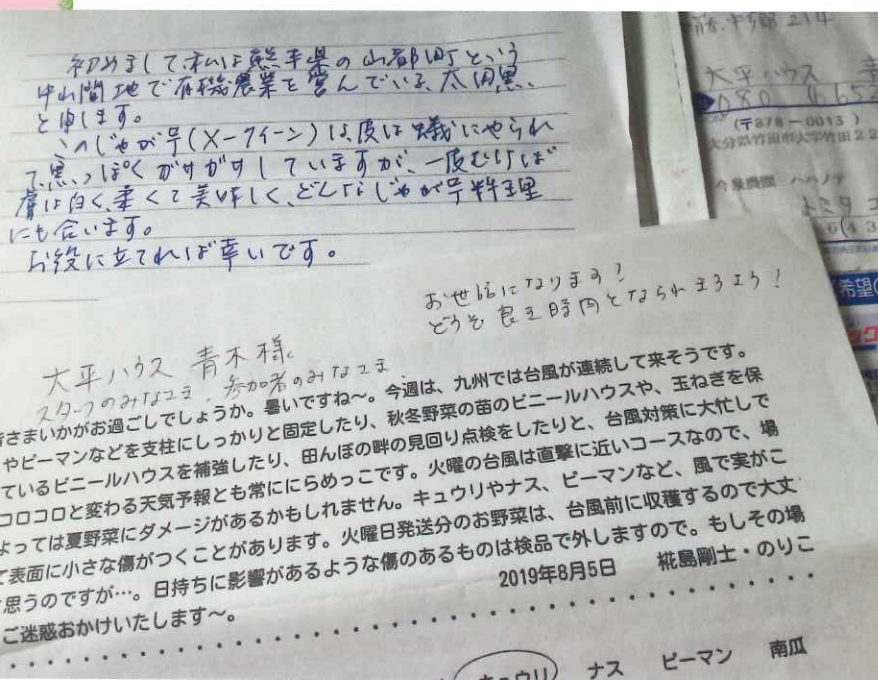 初めまして、私は熊本県の山都町という
中山間地で有機農業を営んでいる、太田黒、
と申します。
このじゃが芋(X-クイーン)は、皮は蟻にやられ
て、黒っぽくガサガサしていますが、一度むけば
膚は白く、柔くて美味しく、どんなじゃが芋料理
にも合います。
お役に立てれば幸いです。
お世話になります!
どうぞ良き時間となられますよう!
大平ハウス 青木様、
スタッフのみなさま、参加者のみなさま
皆さまいかがお過ごしでしょうか。暑いですね〜。今週は、九州では台風が連続して来そうです。
やピーマンなどを支柱にしっかりと固定したり、秋冬野菜の苗のビニールハウスや、玉ねぎを保
ているビニールハウスを補強したり、田んぼの畔の見回り点検をしたりと、台風対策に大忙しで
コロコロと変わる天気予報とも常ににらめっこです。火曜の台風は直撃に近いコースなので、場
よっては夏野菜にダメージがあるかもしれません。キュウリやナス、ピーマンなど、風で実がこ
て表面に小さな傷がつくことがあります。火曜日発送分のお野菜は、台風前に収穫するので大丈
思うのですが…。日持ちに影響があるような傷のあるものは検品で外しますので。もしその場
ご迷惑おかけいたします〜。
2019年8月5日 椛島剛士・のりこ
キュウリ ナス ピーマン 南瓜
214
大平ハウス 青
080
(〒878-0013)
大分県竹田市大字竹田22
希望